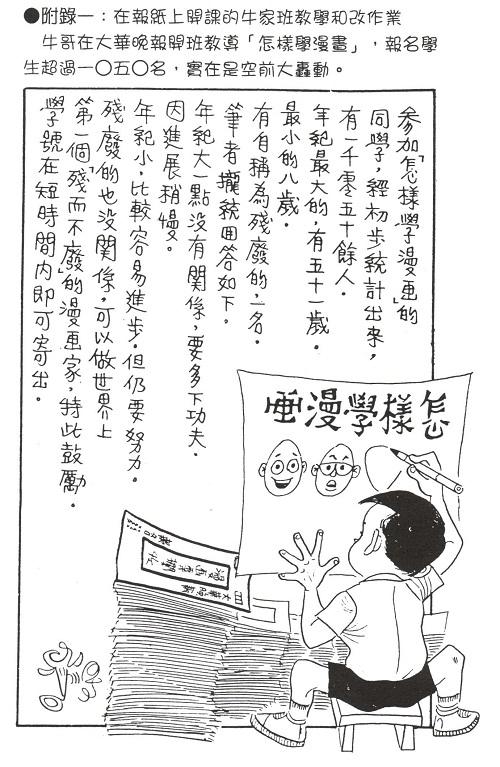 ●附錄一：在報紙上開課的牛家班教學和改作業
牛哥在大華晚報開班教導「怎樣學漫畫」，報名學
生超過一〇五〇名，實在是空前大轟動。
參加「怎樣學漫画」的
同學，經初步統計出來，
有一千零五十餘人．
年紀最大的，有五十一歲．
最小的八歲．
有自稱為殘廢的，一名．
筆者攏統囬答如下。
年紀大一點沒有關係，要多下功夫．
因進展稍慢。
年紀小，比較容易進步．但仍要努力．
殘廢的也沒關係，可以做世界上
第一個「殘而不廢」的漫画家，特此鼓勵．
學號在短時間内即可寄出．
怎樣學漫画
大華晚報